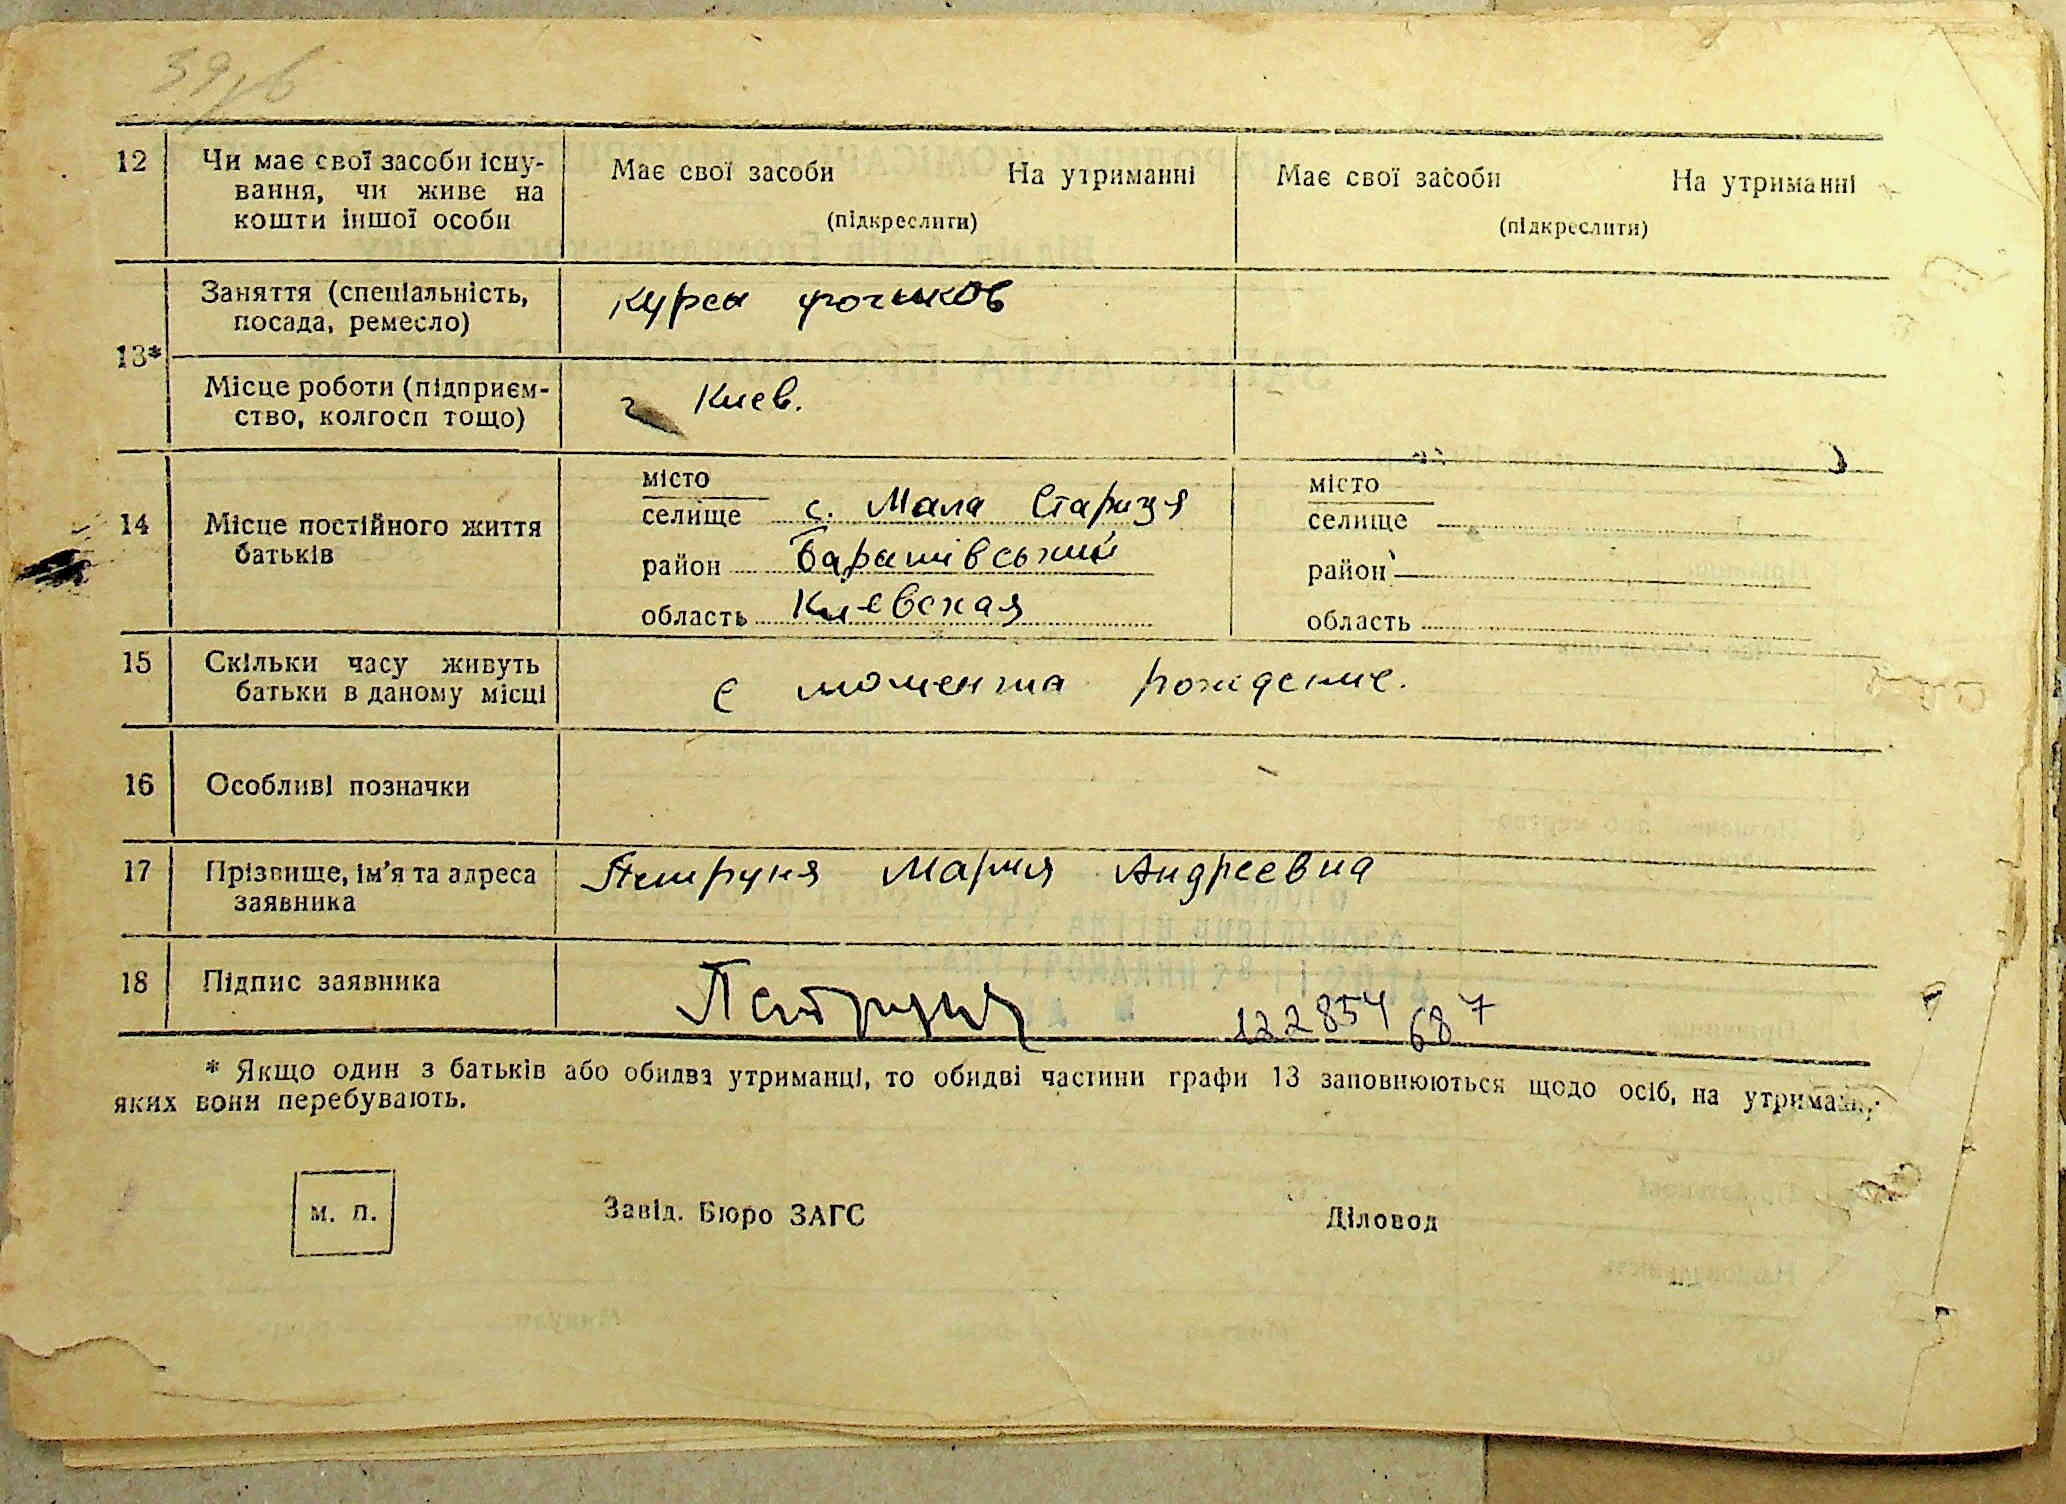 12 Чи має свої засоби існу- Має свої засоби На утриманні Має свої засоби На утриманні
вання, чи живе на
кошти іншої особи (підкреслити) (підкреслити)
Заняття (спеціальність, курсы
посада, ремесло)
13*
Місце роботи (підприєм- г Киев.
ство, колгосп тощо)
місто місто
14 Місце постійного життя селище с. Мала Стариця селище
батьків район район
область Киевская область
15 Скільки часу живуть с момента рождение.
батьки в даному місці
16 Особливі позначки
17 Прізвище, ім'я та адреса Петруня Мария Андреевна
заявника
18 Підпис заявника Петруня 122854 687
* Якщо один з батьків або обидва утриманці, то обидві частини графи 13 заповнюються щодо осіб, на
яких вони перебувають.
м. п. Завід. Бюро ЗАГС Діловод